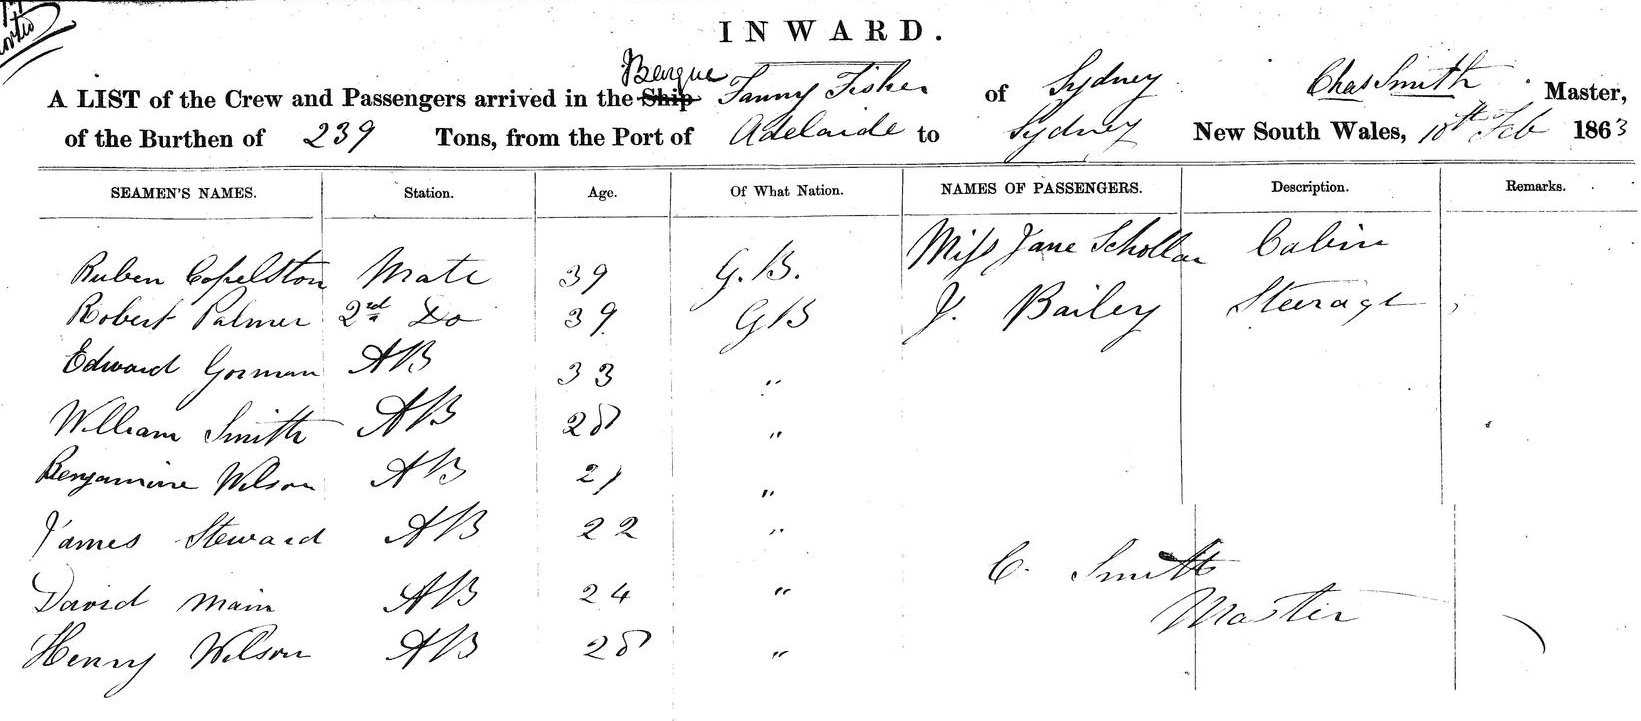 INWARD.
Barque
A LIST of the Crew and Passengers arrived in the Ship Fanny Fisher of Sydney Chas Smith Master,
of the Burthen of 239 Tons, from the Port of Adelaide to Sydney New South Wales, 10th Feb 1863
SEAMEN'S NAMES. Station. Age. Of What Nation. NAMES OF PASSENGERS. Description. Remarks.
Miss Jane Schollar Cabin
Ruben Copelston Mate 39 G.B.
Robert Palmer 2nd Do 39 GB J. Bailey Steerage
Edward Gorman AB 33 "
William Smith AB 28 "
Benjamine Wilson AB 21 "
James Steward AB 22 "
C. Smith
David Main AB 24 "
Master
Henry Wilson AB 28 "